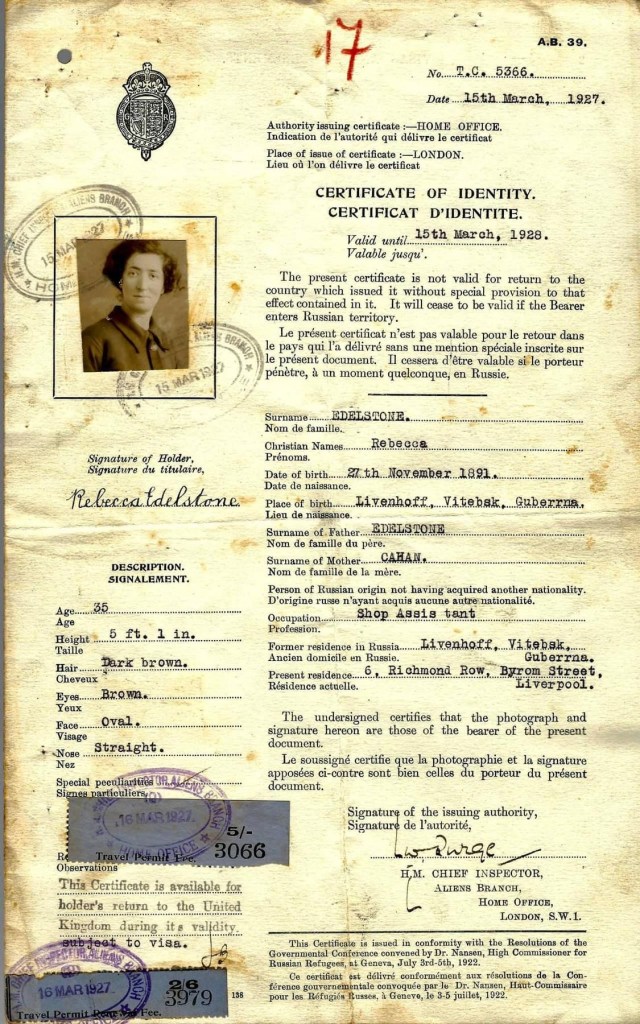 17
A.B. 39.
No. T.C. 5366.
Date 15th March, 1927.
Authority issuing certificate :—HOME OFFICE.
Indication de l'autorité qui délivre le certificat
Place of issue of certificate :—LONDON.
Lieu où l'on délivre le certificat
CERTIFICATE OF IDENTITY.
CERTIFICAT D'IDENTITE.
Valid until 15th March, 1928.
Valable jusqu'.
The present certificate is not valid for return to the
country which issued it without special provision to that
effect contained in it. It will cease to be valid if the Bearer
enters Russian territory.
Le présent certificat n'est pas valable pour le retour dans
le pays qui l'a délivré sans une mention spéciale inscrite sur
le présent document. Il cessera d'être valable si le porteur
pénètre, à un moment quelconque, en Russie.
15 MAR 1927
ALIENS BRANCH
15 MAR 1927
Signature of Holder,
Signature du titulaire,
Rebecca Edelstone
Surname EDELSTONE.
Nom de famille.
Christian Names Rebecca
Prénoms.
Date of birth 27th November 1891.
Date de naissance.
Place of birth Livenhoff, Vitebsk, Guberrna.
Lieu de naissance.
Surname of Father EDELSTONE
Nom de famille du père.
Surname of Mother CAHAN.
Nom de famille de la mère.
Person of Russian origin not having acquired another nationality.
D'origine russe n'ayant acquis aucune autre nationalité.
Occupation Shop Assis tant
Profession.
Former residence in Russia Livenhoff, Vitebsk,
Ancien domicile en Russie. Guberrna.
Present residence 6, Richmond Row, Byrom Street,
Résidence actuelle. Liverpool.
DESCRIPTION.
SIGNALEMENT.
Age 35
Age
Height 5 ft. 1 in.
Taille
Hair Dark brown.
Cheveux
Eyes Brown.
Yeux
Face Oval.
Visage
Nose Straight.
Nez
Special peculiarities
Signes particuliers
16 MAR 1927
HOME OFFICE
5/-
3066
Travel Permit Fee.
Observations
This Certificate is available for
holder's return to the United
Kingdom during its validity
subject to visa.
16 MAR 1927
2/6
3979
Travel Permit Renewal Fee.
138
The undersigned certifies that the photograph and
signature hereon are those of the bearer of the present
document.
Le soussigné certifie que la photographie et la signature
apposées ci-contre sont bien celles du porteur du présent
document.
Signature of the issuing authority,
Signature de l'autorité,
H.M. CHIEF INSPECTOR,
ALIENS BRANCH,
HOME OFFICE,
LONDON, S.W.1.
This Certificate is issued in conformity with the Resolutions of the
Governmental Conference convened by Dr. Nansen, High Commissioner for
Russian Refugees, at Geneva, July 3rd-5th, 1922.
Ce certificat est délivré conformément aux résolutions de la Con-
férence gouvernementale convoquée par le Dr. Nansen, Haut-Commissaire
pour les Réfugiés Russes, à Geneve, le 3-5 juillet, 1922.